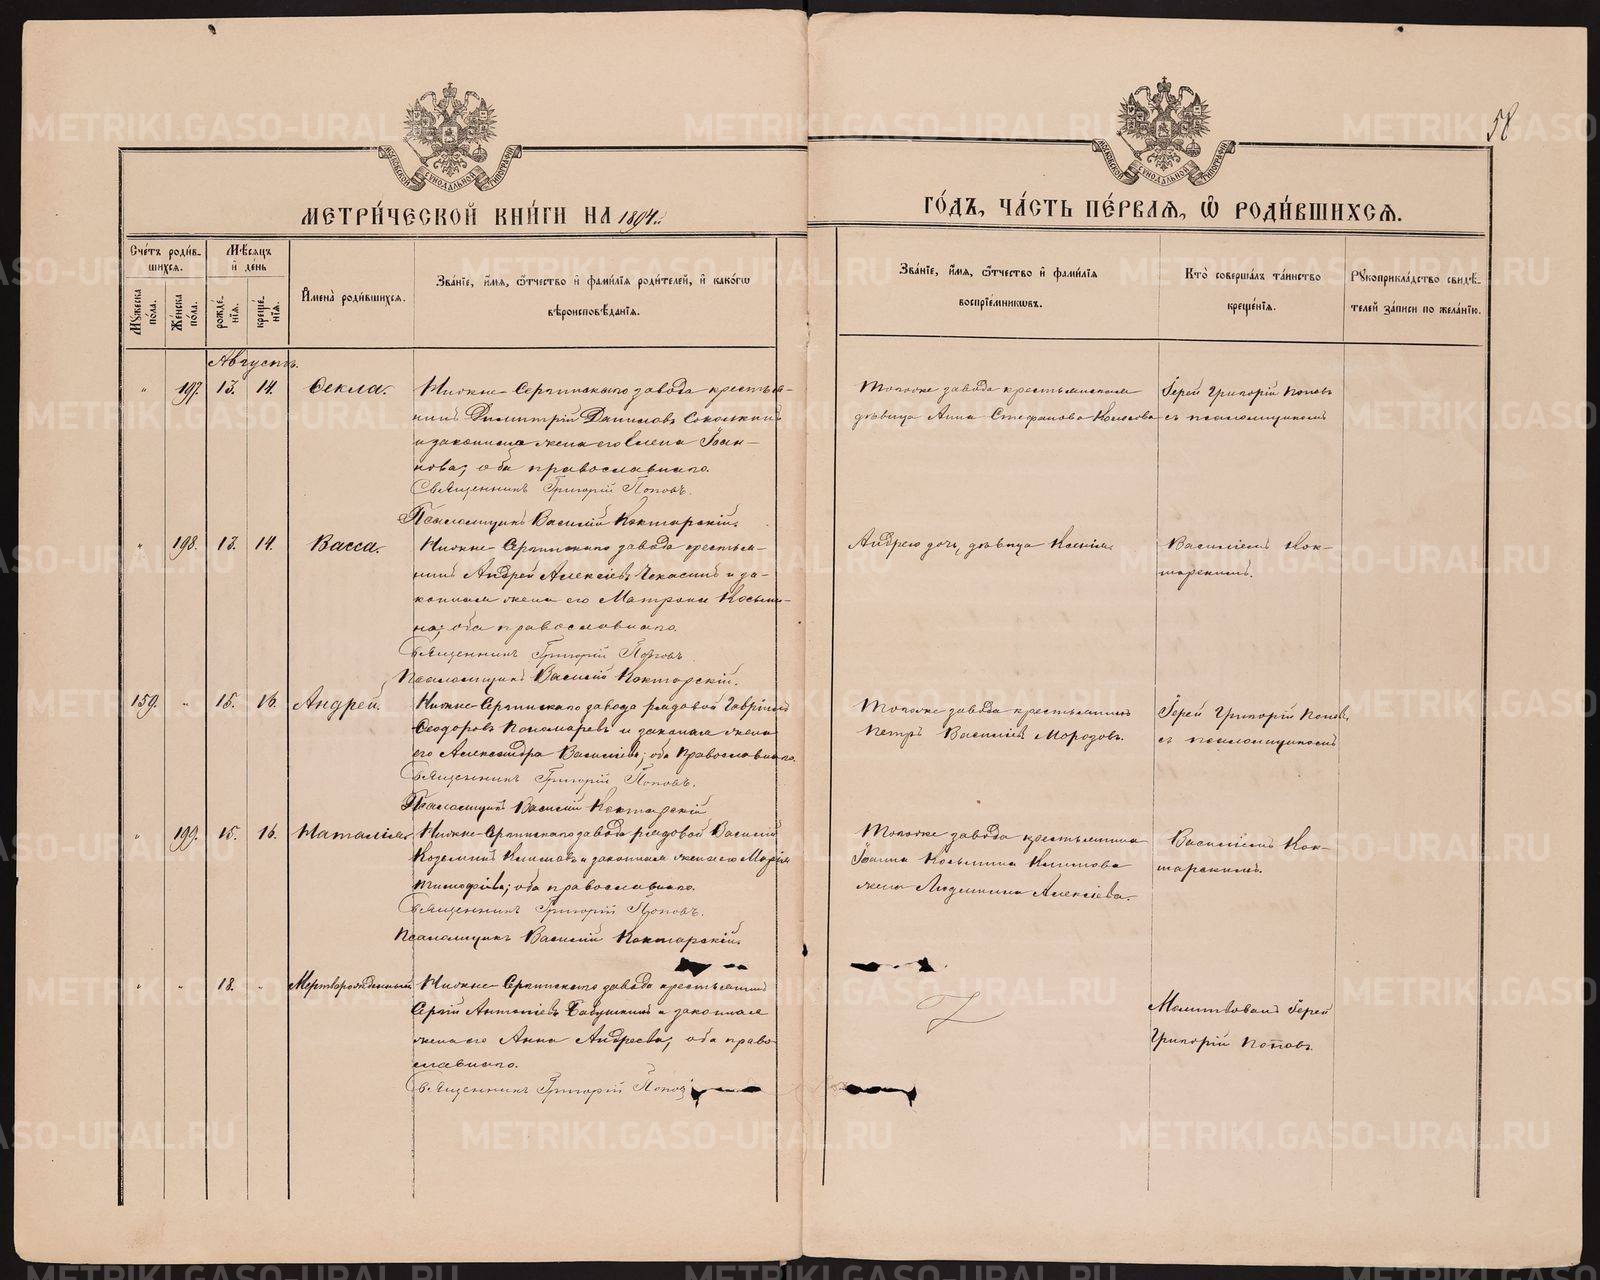 58
МЕТРИ́ЧЕСКОЙ КНИ́ГИ НА 1894 ГО́ДЪ, ЧА́СТЬ ПЕ́РВАЯ, Ѡ РОДИ́ВШИХСЯ.
МОСКОВСКОЙ СѴНОДАЛЬНОЙ ТИПОГРАФІИ
МОСКОВСКОЙ СѴНОДАЛЬНОЙ ТИПОГРАФІИ
Сче́тъ роди́вшихся.
Мꙋ́жеска по́ла.
Же́неска по́ла.
Мѣ́сяцъ и҆ де́нь
рожде́нїя.
креще́нїя.
И҆мена̀ роди́вшихся.
Зва́нїе, и҆́мя, ѻ҆́тчество и҆ фами́лїя роди́телей, и҆ како́гѡ
вѣроисповѣ́данїя.
Зва́нїе, и҆́мя, ѻ҆́тчество и҆ фами́лїя
воспрїе́мникѡвъ.
Кто̀ соверша́лъ та́инство
креще́нїя.
Рꙋкоприкла́дство свидѣ́-
телей за́писи по жела́нїю.
Августъ.
" 197. 13. 14. Ѳекла.
Нижне-Сергинскаго завода крестья-
нинъ Димитрій Даниловъ
и законная жена его Елена Іоан-
нова; оба православнаго.
Священникъ Григорій Поповъ.
Псаломщикъ Василій Коктарскій.
Тогоже завода крестьянская
дѣвица Анна Стефанова
Іерей Григорій Поповъ
съ псаломщикомъ
" 198. 13. 14. Васса.
Нижне-Сергинскаго завода крестья-
нинъ Андрей Алексіевъ и за-
конная жена его Матрона Косьми-
на; оба православнаго.
Священникъ Григорій Поповъ
Псаломщикъ Василій Коктарскій.
Андрею дочь, дѣвица Ксенія.
Василіемъ Кок-
тарскимъ.
159. " 15. 16. Андрей.
Нижне-Сергинскаго завода рядовой Гавріилъ
Ѳеодоровъ Пономаревъ и законная жена
его Александра Васильева; оба православнаго.
Священникъ Григорій Поповъ.
Псаломщикъ Василій Коктарскій
Тогоже завода крестьянинъ
Петръ Василіевъ Морозовъ.
Іерей Григорій Поповъ
съ псаломщикомъ
" 199. 15. 16. Наталія.
Нижне-Сергинскаго завода рядовой Василій
Козьминъ Климовъ и законная жена его Марія
Тимофѣева; оба православнаго.
Священникъ Григорій Поповъ.
Псаломщикъ Василій Коктарскій.
Тогоже завода крестьянина
Іоанна Косьмина Климова
жена Людмила Алексіева.
Василіемъ Кок-
тарскимъ.
" " 18. " Мертворожденный
Нижне-Сергинскаго завода крестьянинъ
Сергій Антоніевъ Бабушкинъ и законная
жена его Анна Андреева; оба право-
славнаго.
Священникъ Григорій Попов
Молитвовалъ Іерей
Григорій Поповъ.
METRIKI.GASO-URAL.RU